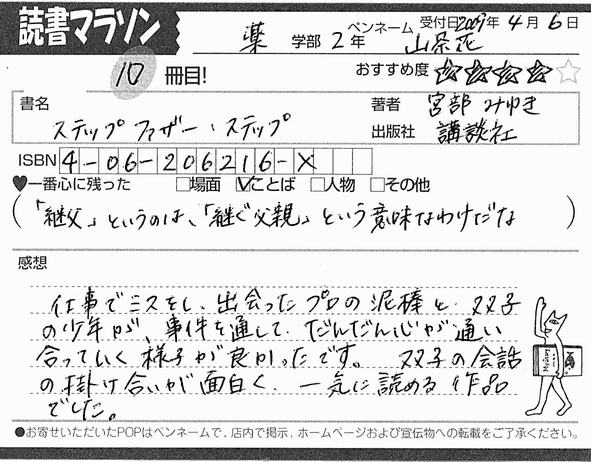 読書マラソン
薬 学部 2 年 ペンネーム 山茶花 受付日2009年 4月 6日
10 冊目! おすすめ度 ★★★★☆
書名 ステップファザー・ステップ
著者 宮部みゆき
出版社 講談社
ISBN 4-06-206216-X
♥一番心に残った □場面 ☑ことば □人物 □その他
(「継父」というのは、「継ぐ父親」という意味なわけだな)
感想
仕事でミスをし、出会ったプロの泥棒と、双子
の少年が、事件を通して、だんだん心が通い
合っていく様子が良かったです。 双子の会話
の掛け合いが面白く、一気に読める作品
でした。
●お寄せいただいたPOPはペンネームで、店内で掲示、ホームページおよび宣伝物への転載をご了承ください。